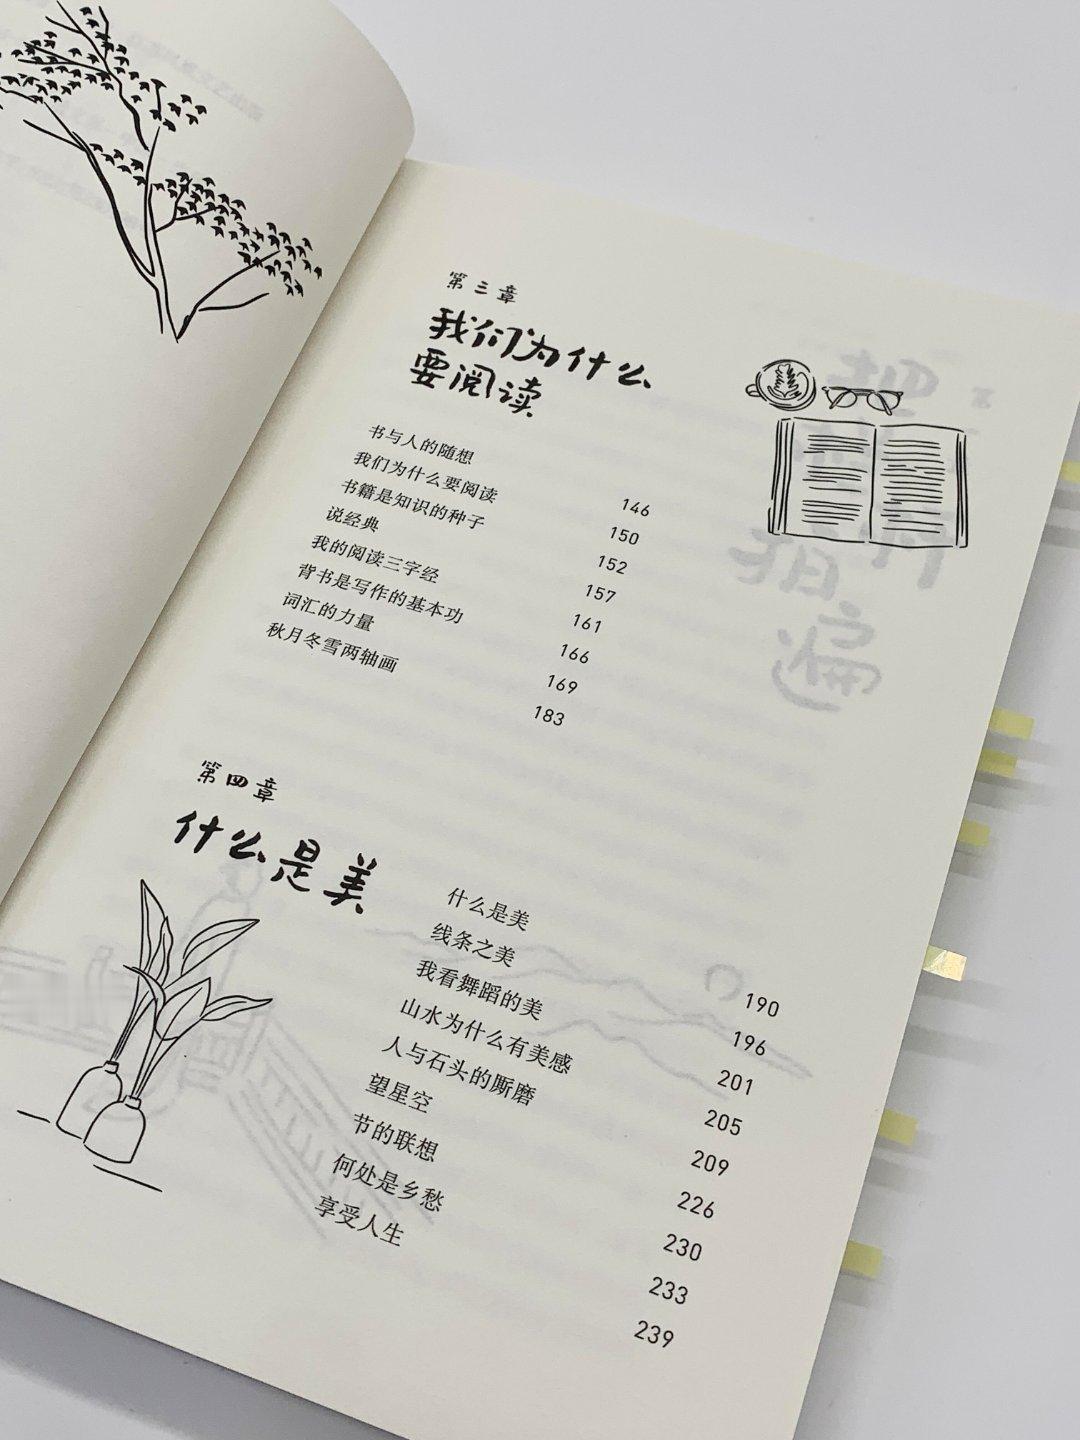 第三章
我们为什么
要阅读
书与人的随想 146
我们为什么要阅读 150
书籍是知识的种子 152
说经典 157
我的阅读三字经 161
背书是写作的基本功 166
词汇的力量 169
秋月冬雪两轴画 183
第四章
什么是美
什么是美 190
线条之美 196
我看舞蹈的美 201
山水为什么有美感 205
人与石头的厮磨 209
望星空 226
节的联想 230
何处是乡愁 233
享受人生 239